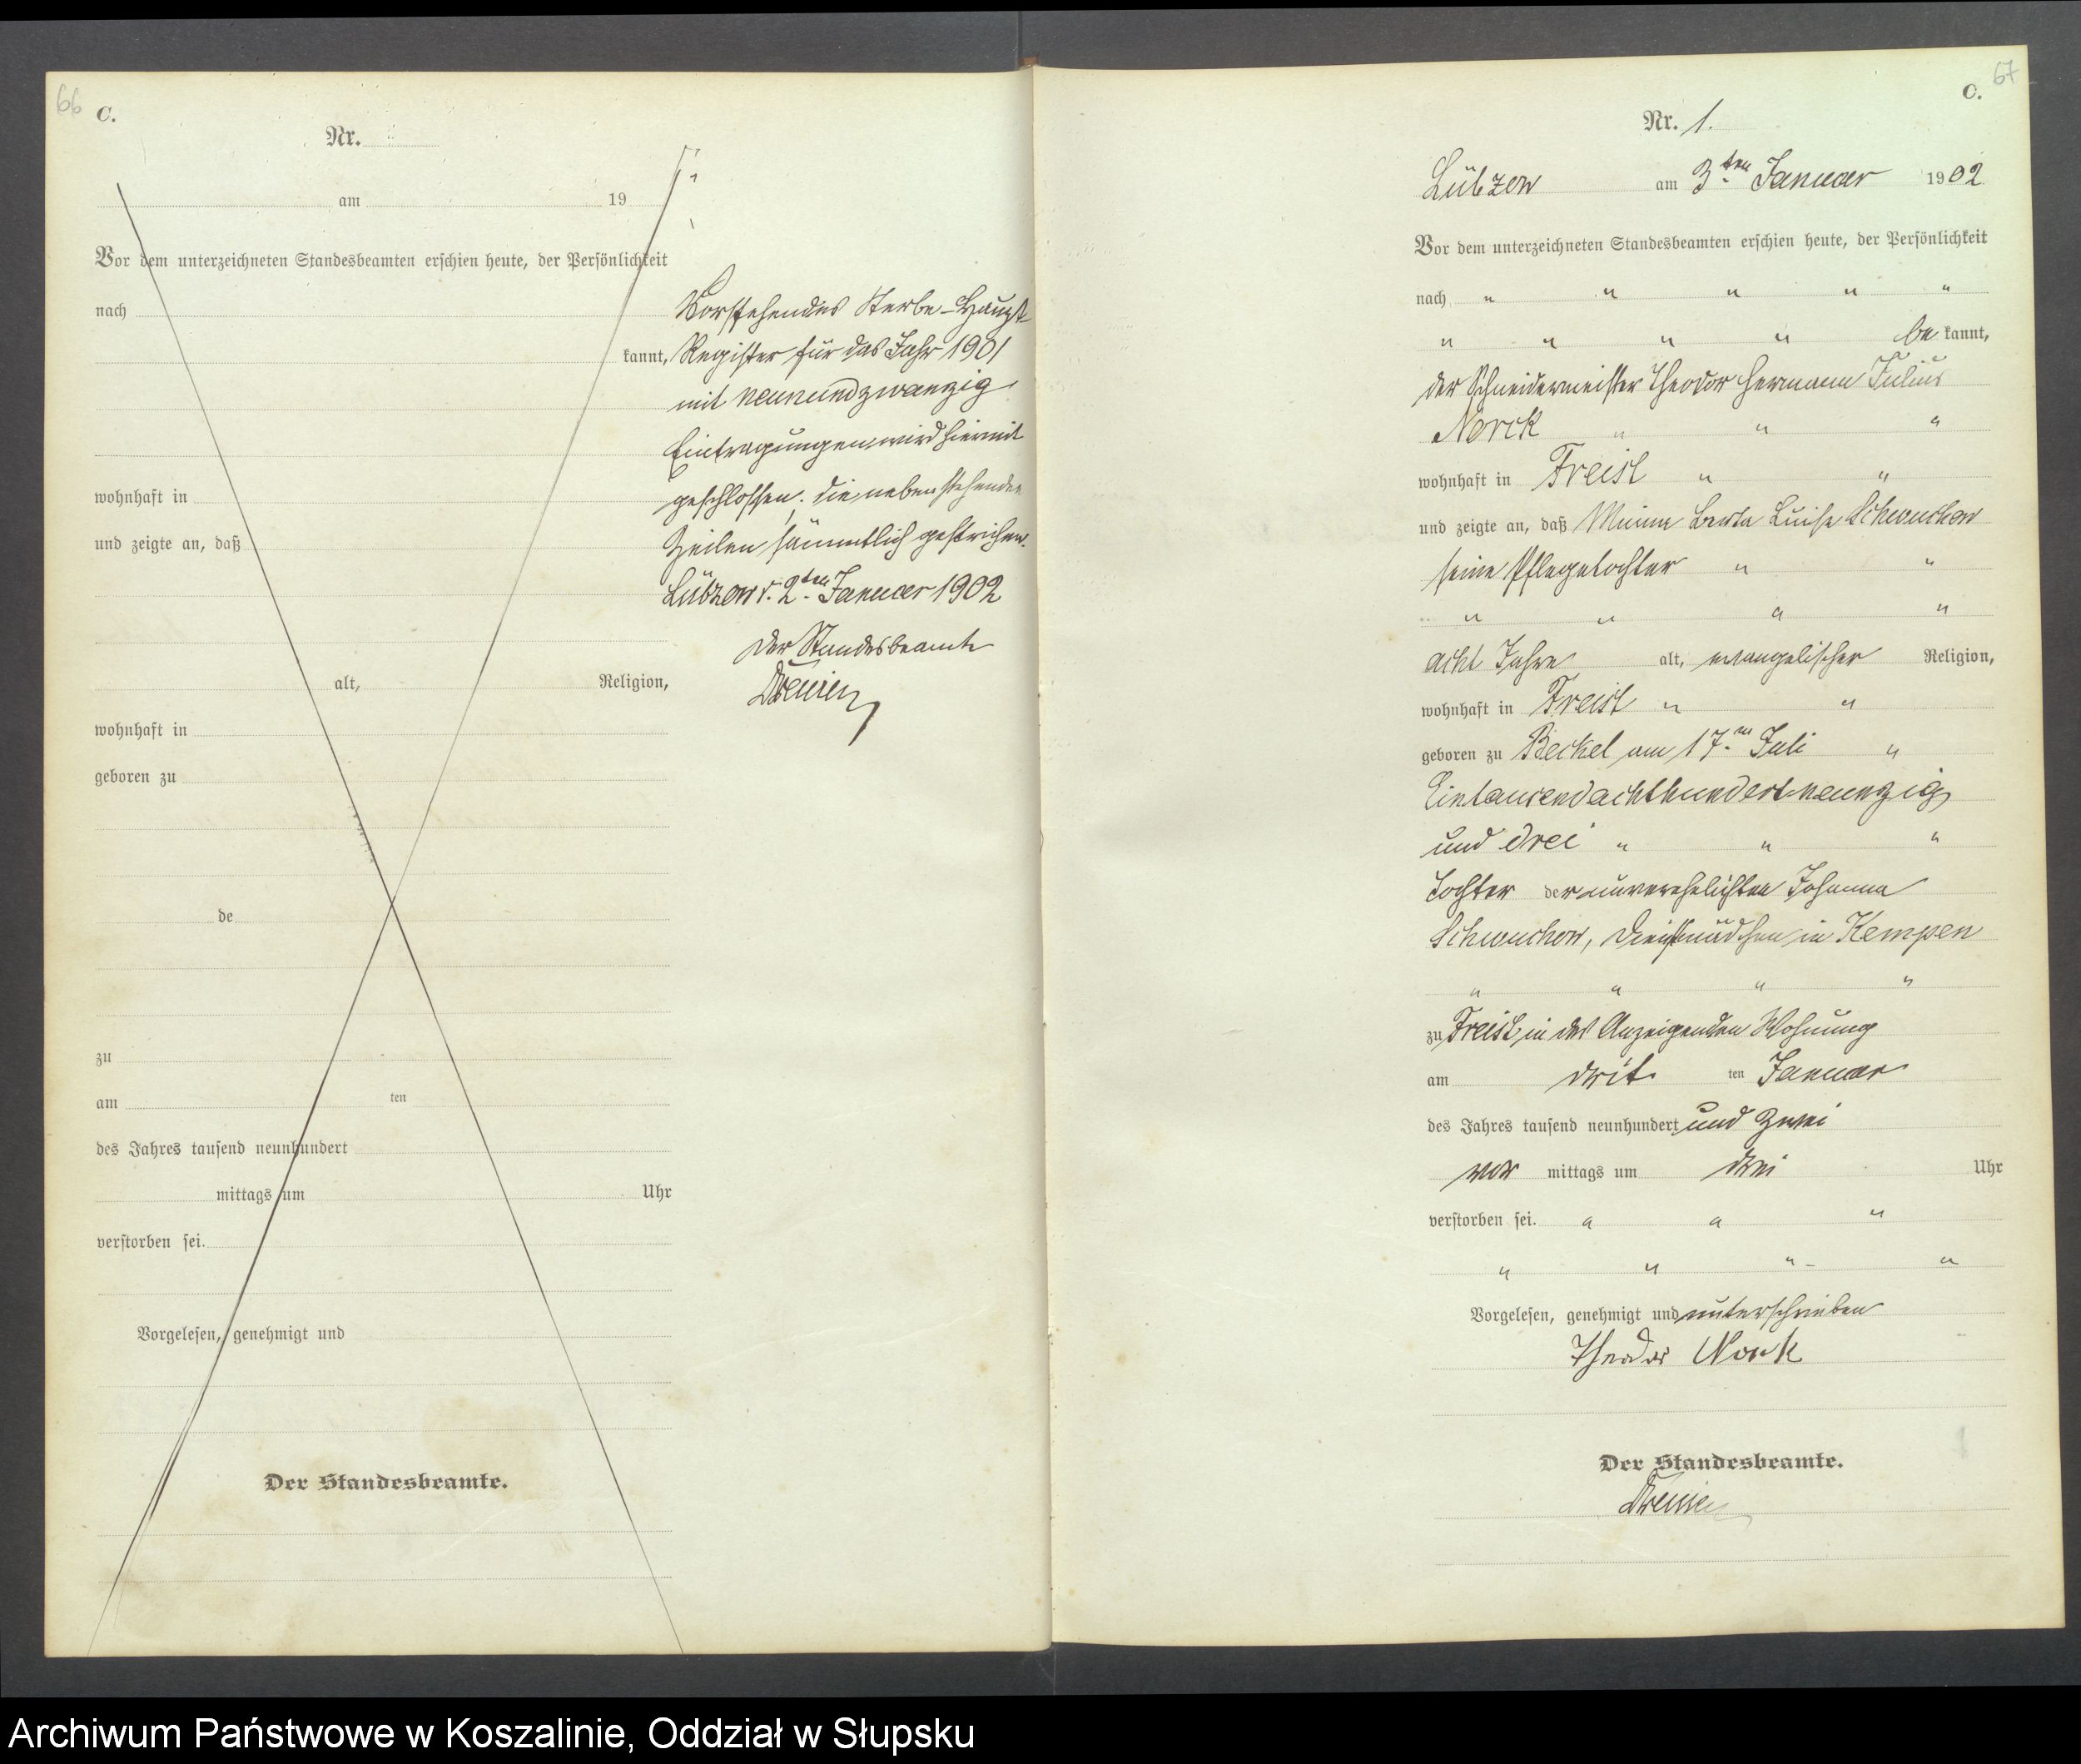 66
C.
Nr.
am 19
Vor dem unterzeichneten Standesbeamten erschien heute, der Persönlichkeit
nach
kannt,
wohnhaft in
und zeigte an, daß
alt, Religion,
wohnhaft in
geboren zu
de
zu
am ten
des Jahres tausend neunhundert
mittags um Uhr
verstorben sei.
Vorgelesen, genehmigt und
Der Standesbeamte.
Vorstehendes Sterbe-Haupt-
Register für das Jahr 1901
mit neunundzwanzig
Eintragungen wird hiermit
geschlossen. Die nebenstehenden
Zeilen sämmtlich gestrichen.
Lübzow d. 2ten Januar 1902
Der Standesbeamte
67
C.
Nr. 1.
Lübzow am 3ten Januar 1902
Vor dem unterzeichneten Standesbeamten erschien heute, der Persönlichkeit
nach " " " " "
" " " " be kannt,
der Schneidermeister Theodor Hermann Julius
Norck " " "
wohnhaft in Freist " "
und zeigte an, daß Minna Berta Luise Schwuchow
seine Pflegetochter " "
" " " "
acht Jahre alt, evangelischer Religion,
wohnhaft in Freist " "
geboren zu Beckel am 17ten Juli "
Eintausendachthundertneunzig
und drei " " "
Tochter der unverehelichten Johanna
Schwuchow, Dienstmädchen in Kempen
" " " "
zu Freist in des Anzeigenden Wohnung
am drit ten Januar
des Jahres tausend neunhundert und zwei
vor mittags um drei Uhr
verstorben sei. " " "
" " " "
Vorgelesen, genehmigt und unterschrieben
Theodor Norck
Der Standesbeamte.
Archiwum Państwowe w Koszalinie, Oddział w Słupsku